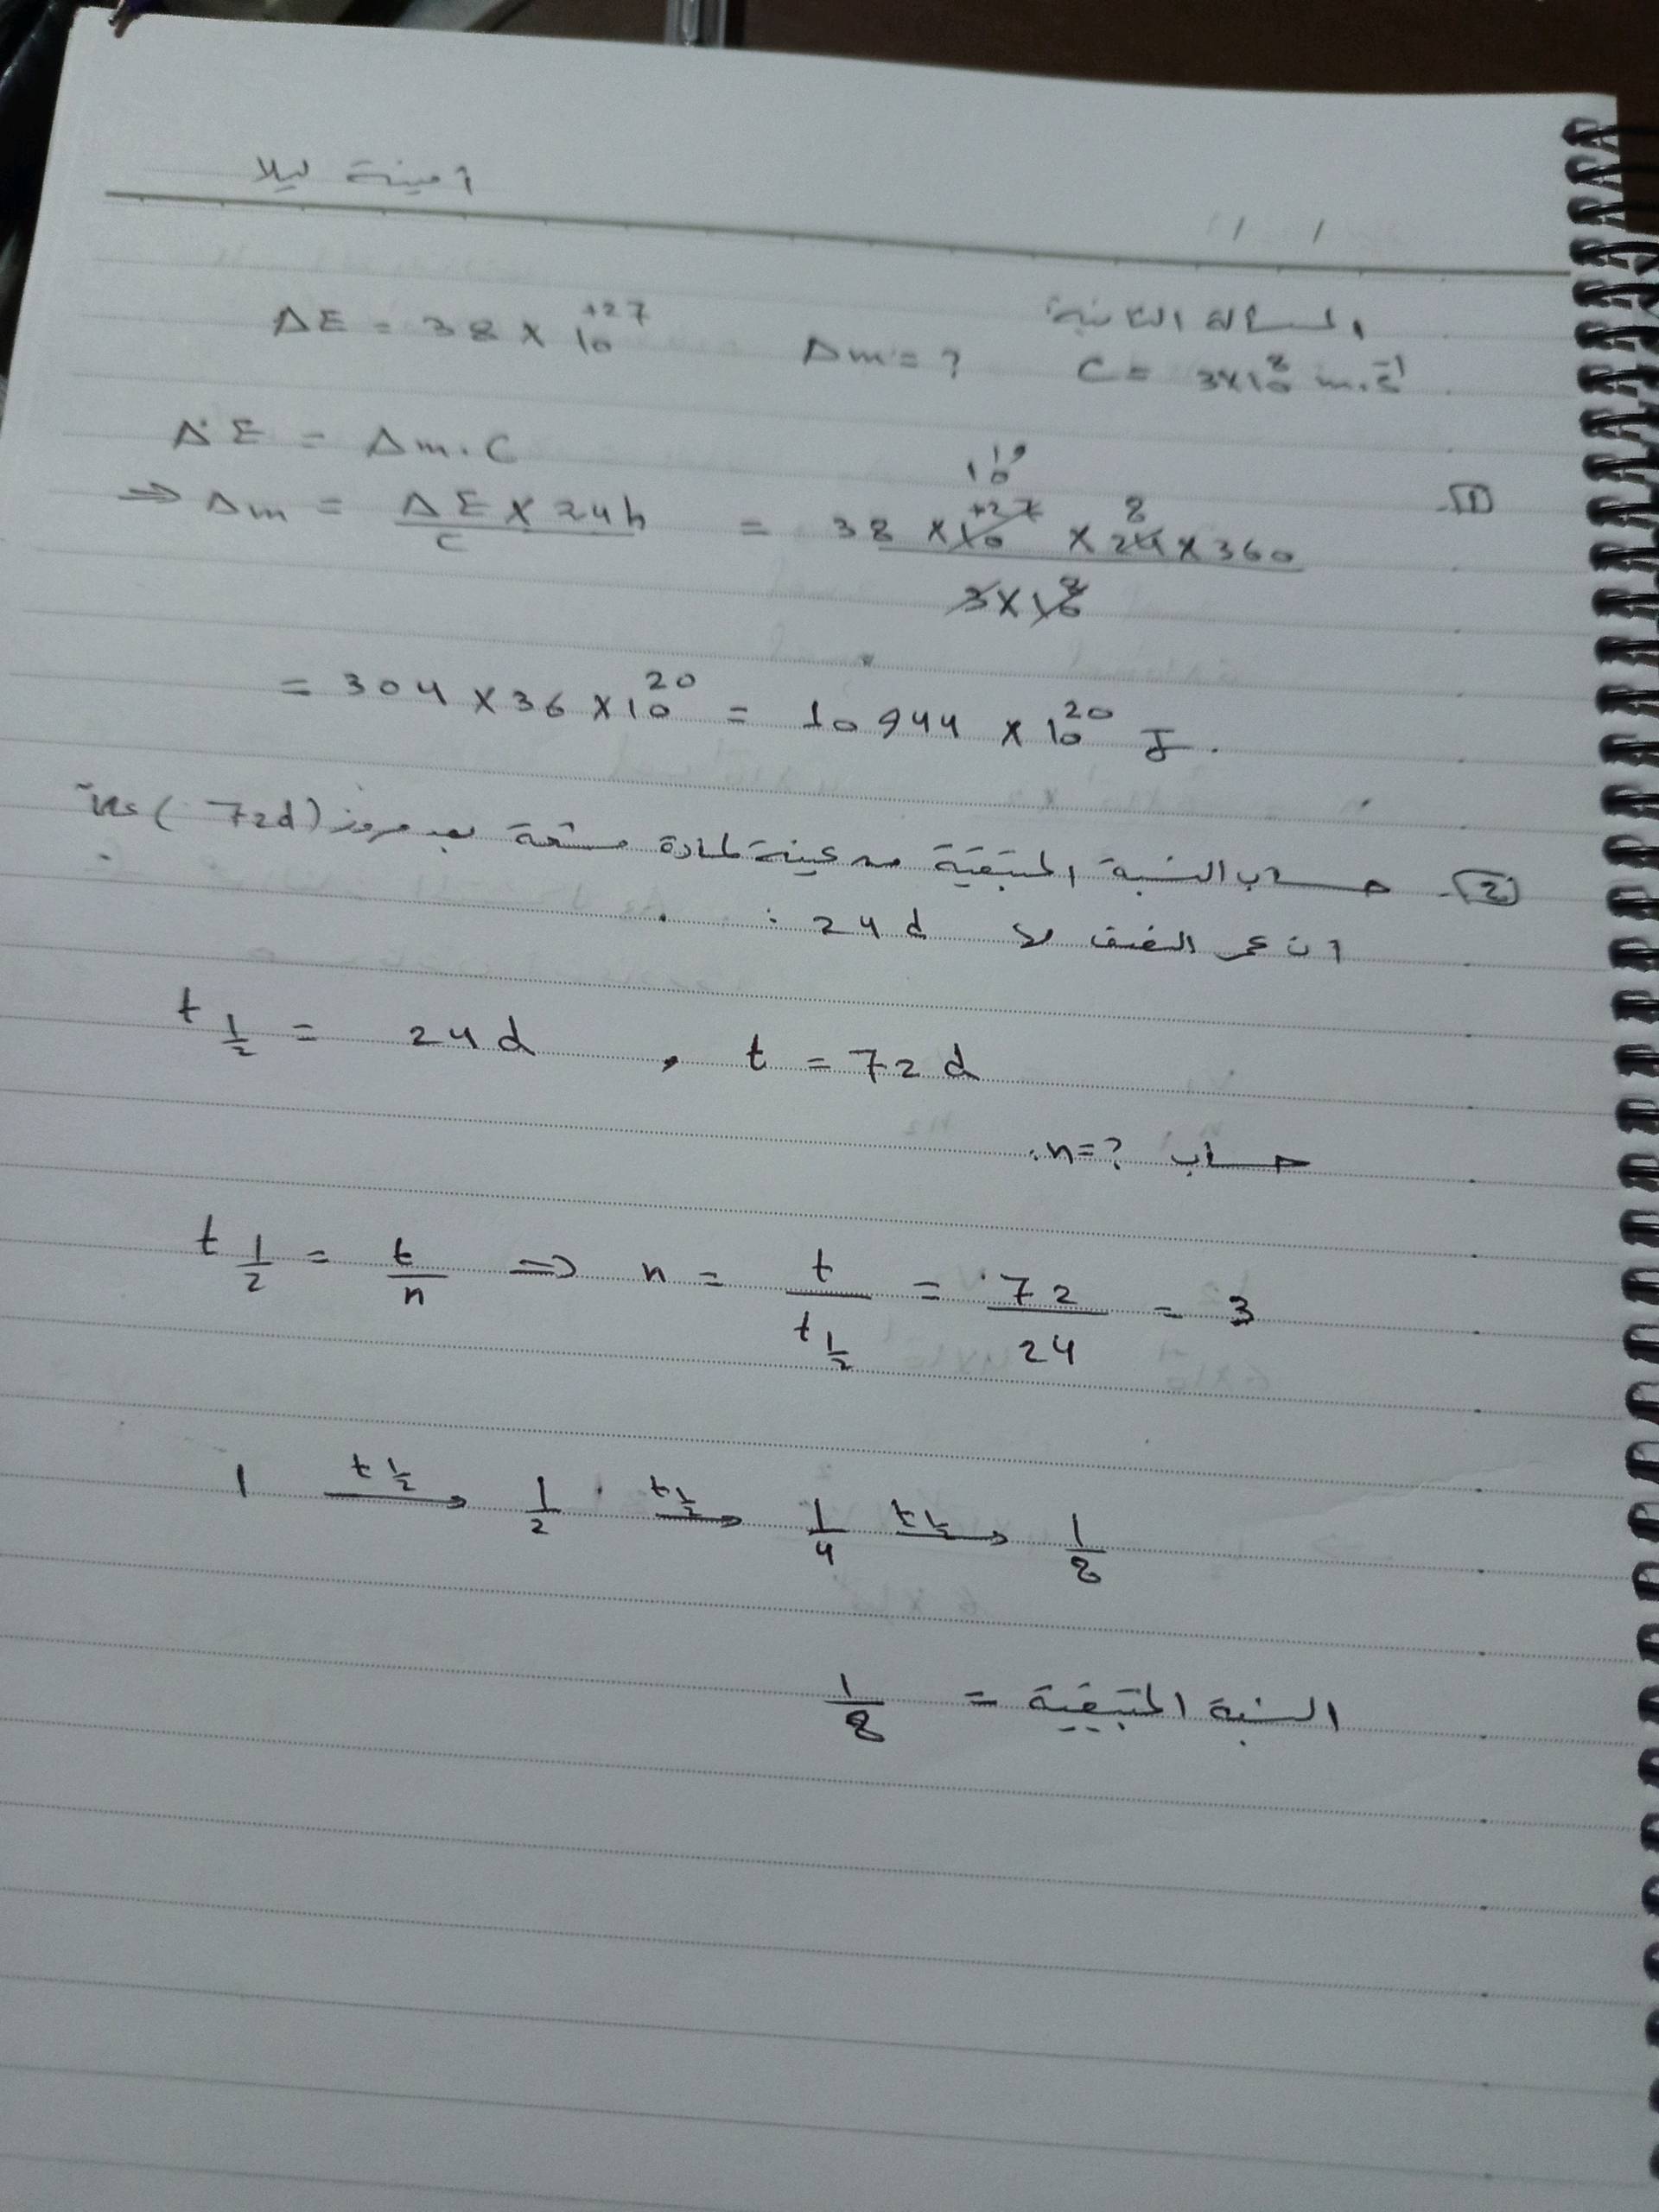 أمينة ليلا
المسألة الثانية:
ΔE = 38 × 10^+27 Δm = ? C = 3×10^8 m.s^-1
ΔE = Δm . C
1- ⇒ Δm = ΔE × 24h / C = 38 × 10^+27 × 24 × 360 / 3×10^8
10^19 8
= 304 × 36 × 10^20 = 10944 × 10^20 J.
2- حساب النسبة المتبقية من عينة لمادة مشعة بعد مرور (72d)
أن عمر النصف لا 24 d :
t 1/2 = 24 d , t = 72 d
حساب n=?
t 1/2 = t/n ⇒ n = t / t 1/2 = 72/24 = 3
1 —t 1/2→ 1/2 —t 1/2→ 1/4 —t 1/2→ 1/8
النسبة المتبقية = 1/8